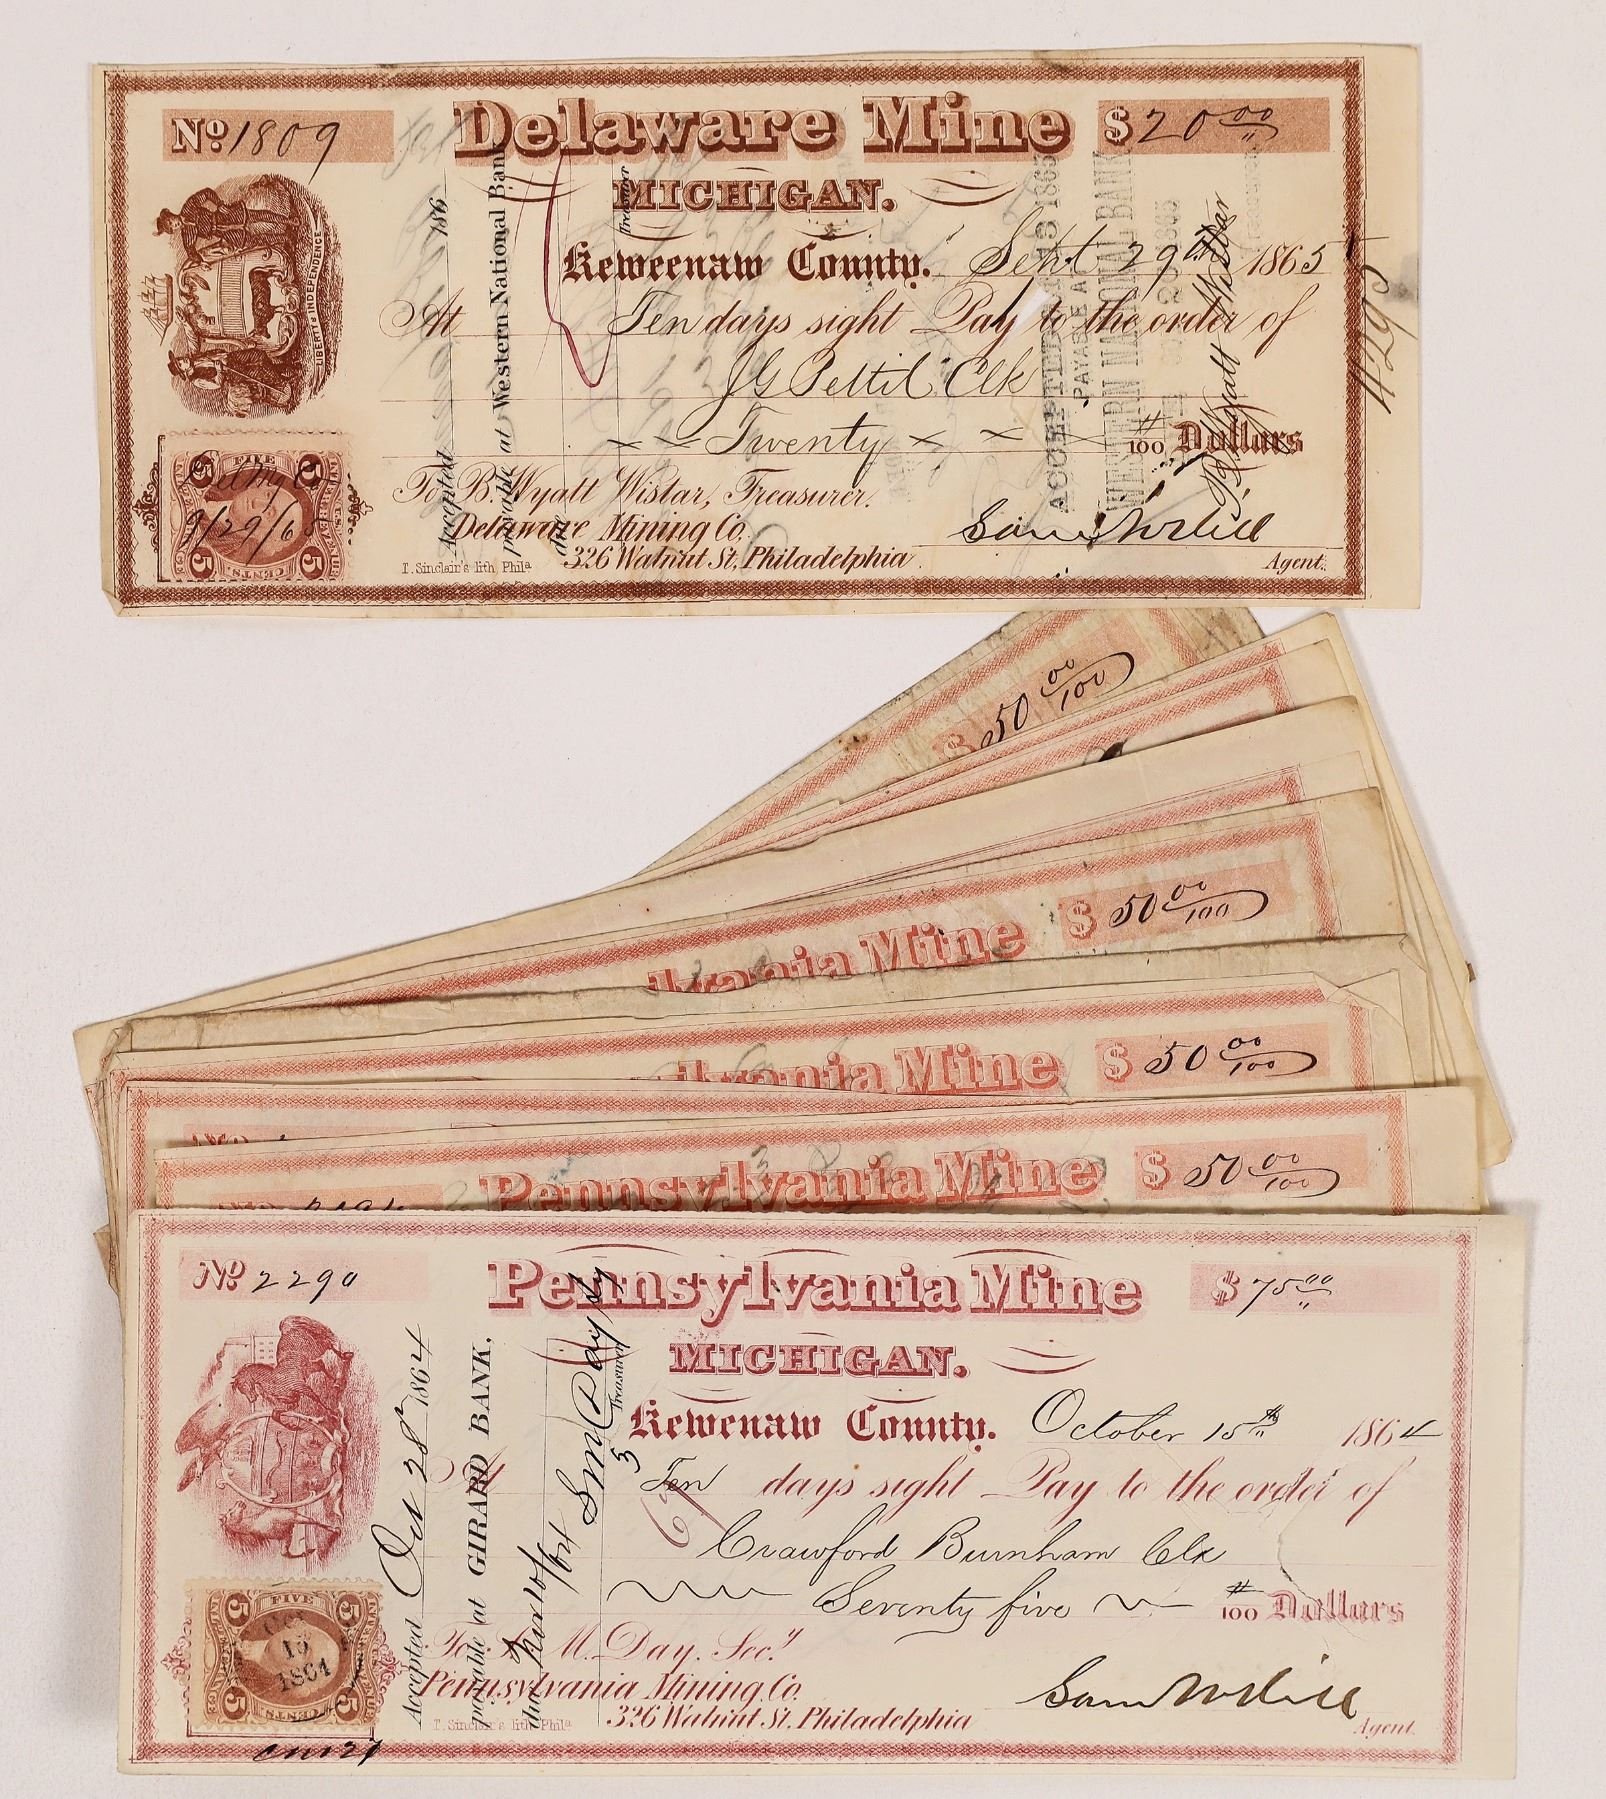 No. 1809 Delaware Mine $ 20 00/"
MICHIGAN.
Keweenaw County. Sept 29th 1865
At Ten days sight Pay to the order of
J G Pettit Clk
Twenty #/100 Dollars
To B. Wyatt Wistar, Treasurer.
Delaware Mining Co.
326 Walnut St, Philadelphia.
T. Sinclair's lith, Phila
Agent.
LIBERTY & INDEPENDENCE
FIVE
5 5
9/29/65
5 CENTS 5
Accepted 186
payable at Western National Bank
due
Treasurer
ACCEPTED
1865
PAYABLE AT
WESTERN NATIONAL BANK
B. Wyatt Wistar
$ 50 00/100
lvania Mine $ 50 00/100
ylvania Mine $ 50 00/100
Pennsylvania Mine $ 50 00/100
No 2290 Pennsylvania Mine $ 75 00/"
MICHIGAN.
Kewenaw County. October 15th 1864
At Ten days sight Pay to the order of
Crawford Burnham Clk
Seventy five #/100 Dollars
M. Day, Secy
Pennsylvania Mining Co.
326 Walnut St. Philadelphia
T. Sinclair's lith, Phila
Agent
Accepted Oct 28 1864
payable at GIRARD BANK.
due
Treasurer
FIVE
5 5
OCT
15
1864
5 CENTS 5